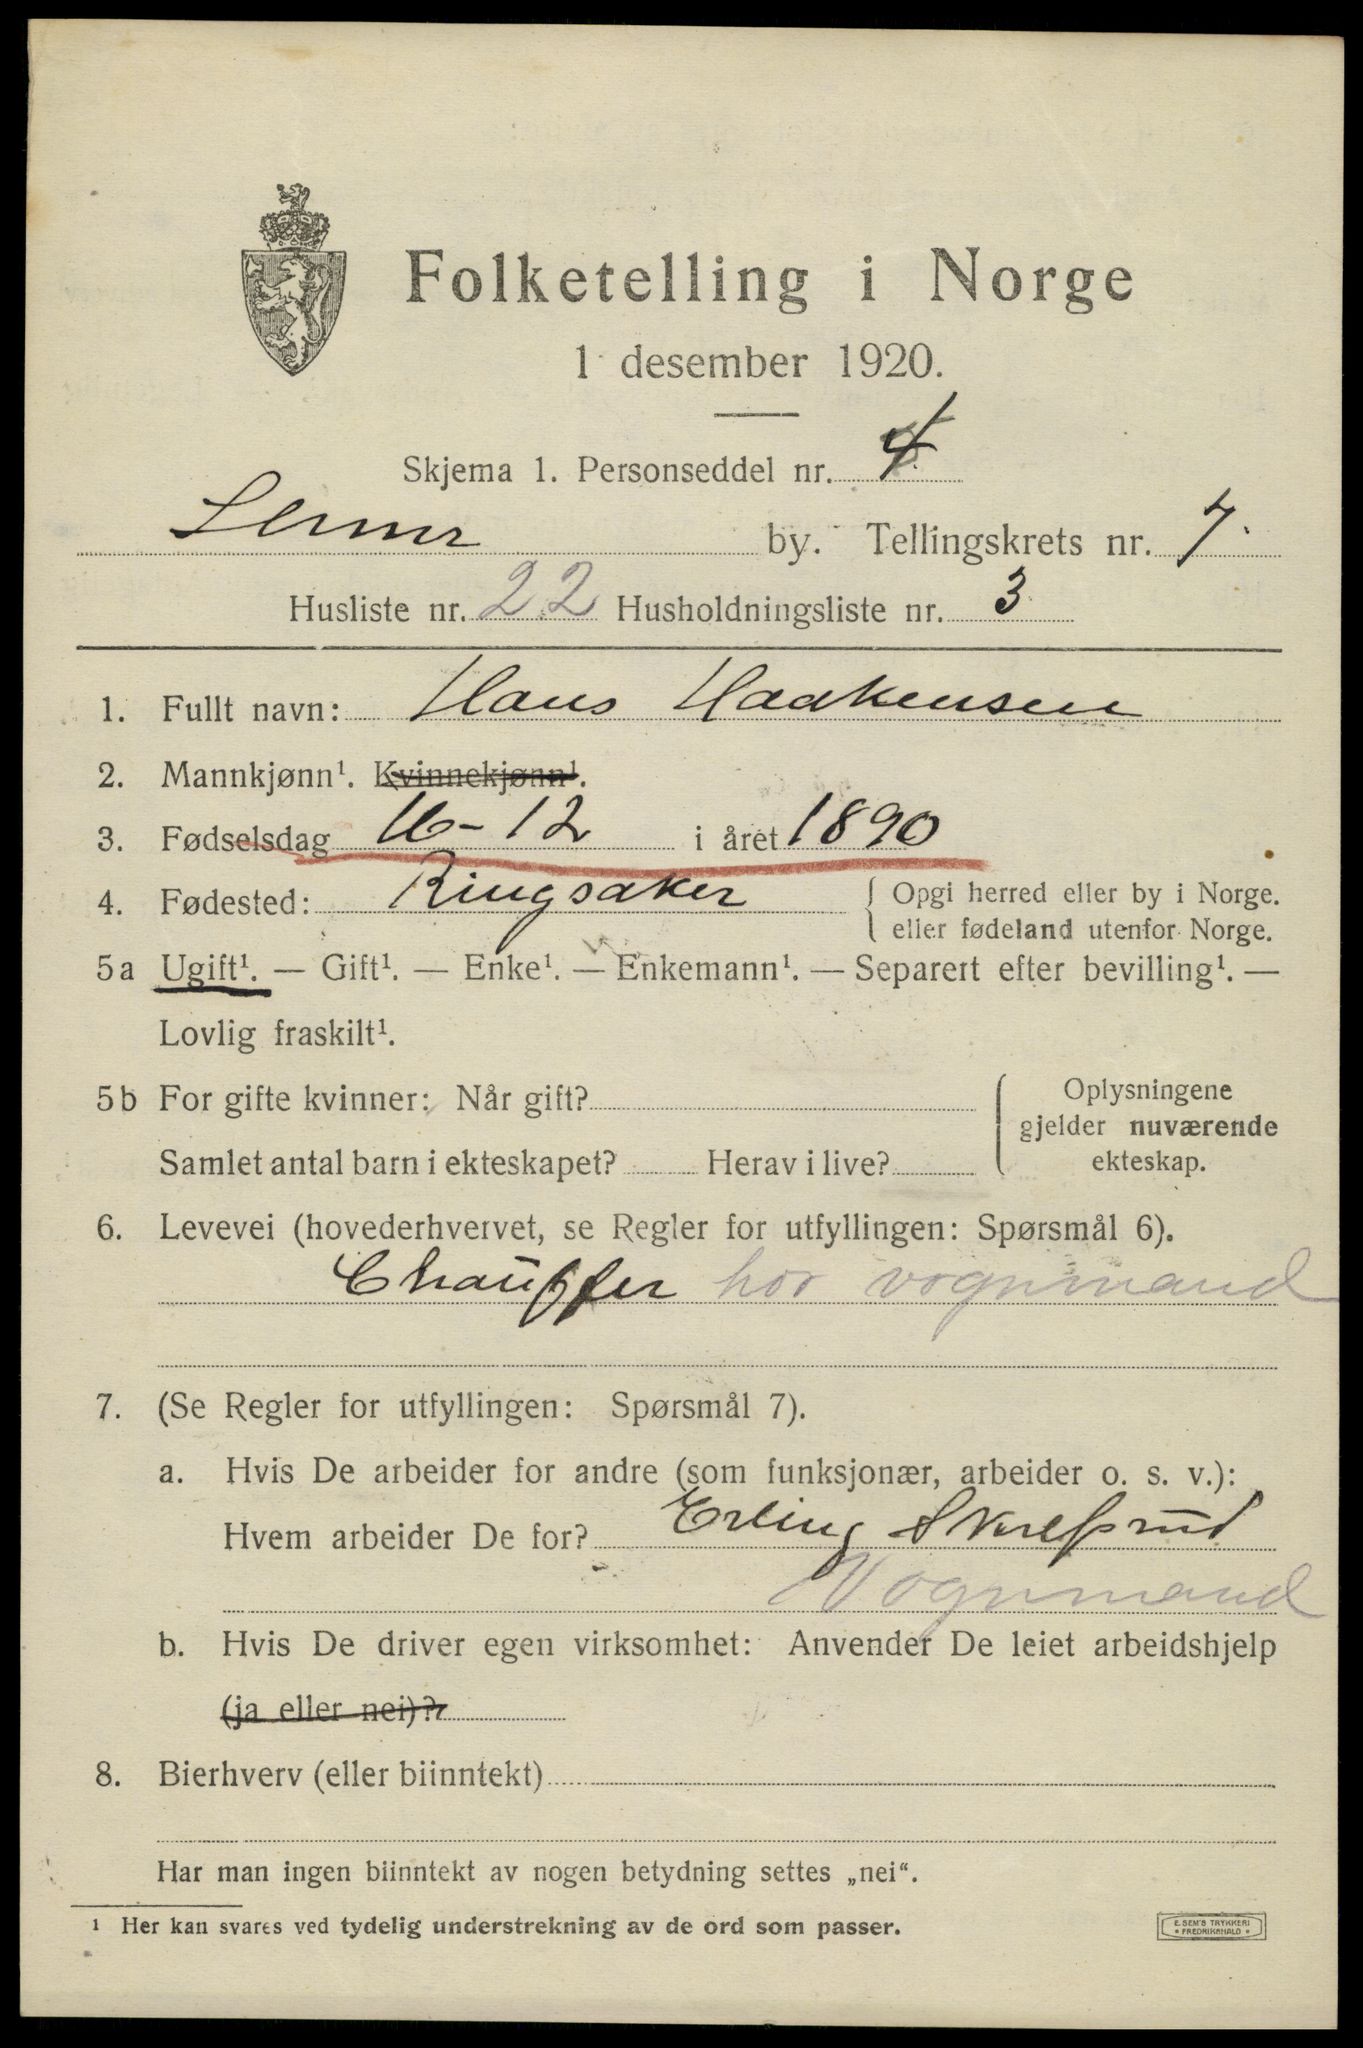 Folketelling i Norge
1 desember 1920.
Skjema 1. Personseddel nr. 4
by. Tellingskrets nr. 7.
Husliste nr. 22 Husholdningsliste nr. 3
1. Fullt navn: Hans Haakensen
2. Mannkjønn¹. Kvinnekjønn¹.
3. Fødselsdag 16-12 i året 1890
4. Fødested: Ringsaker { Opgi herred eller by i Norge.
eller fødeland utenfor Norge.
5a Ugift¹. — Gift¹. — Enke¹. — Enkemann¹. — Separert efter bevilling¹. —
Lovlig fraskilt¹.
5b For gifte kvinner: Når gift? Oplysningene
gjelder nuværende
Samlet antal barn i ekteskapet? Herav i live? ekteskap.
6. Levevei (hovederhvervet, se Regler for utfyllingen: Spørsmål 6).
Chauffer hos vognmand
7. (Se Regler for utfyllingen: Spørsmål 7).
a. Hvis De arbeider for andre (som funksjonær, arbeider o. s. v.):
Hvem arbeider De for? Erling Skrefsrud
Vognmand
b. Hvis De driver egen virksomhet: Anvender De leiet arbeidshjelp
(ja eller nei)?
8. Bierhverv (eller biinntekt)
Har man ingen biinntekt av nogen betydning settes „nei“.
¹ Her kan svares ved tydelig understrekning av de ord som passer.
E. SEM'S TRYKKERI
FREDRIKSHALD